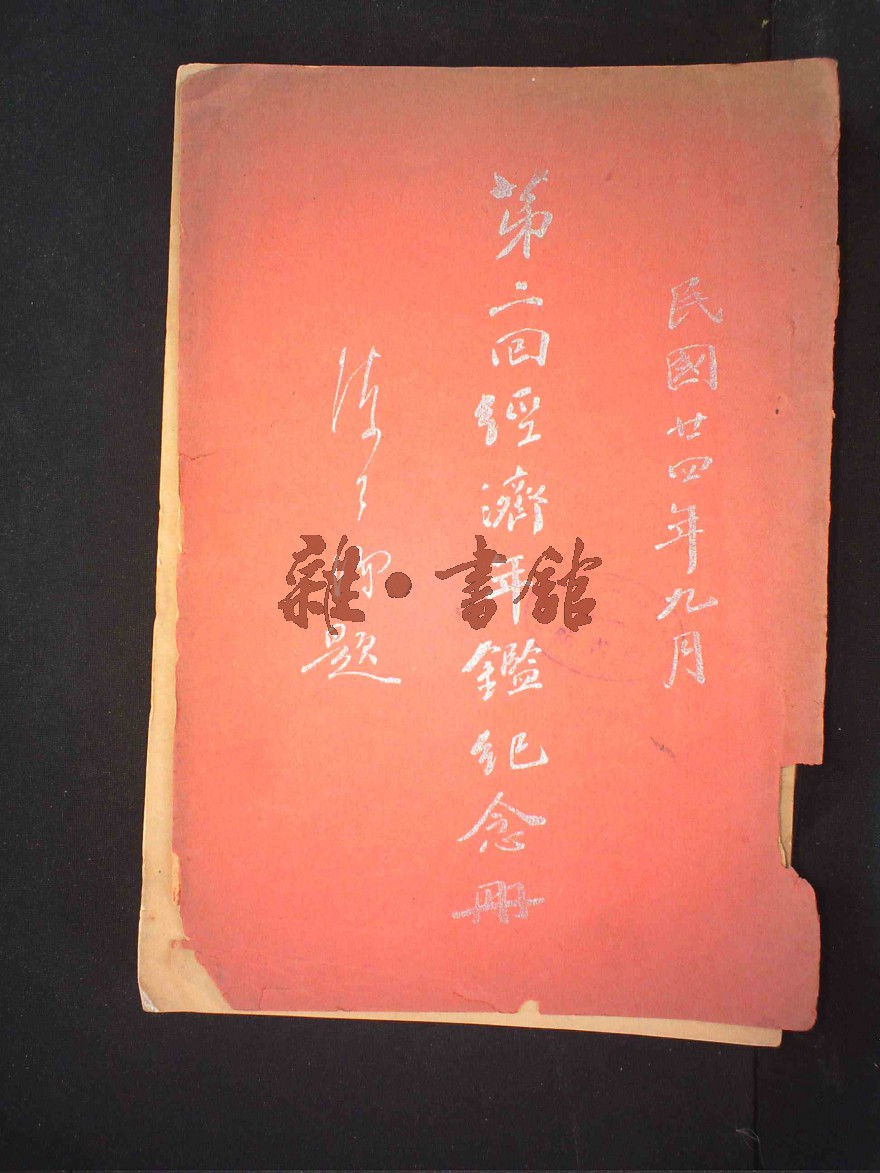 民國廿四年九月
第二回經濟年鑑紀念冊
題
雜·書館